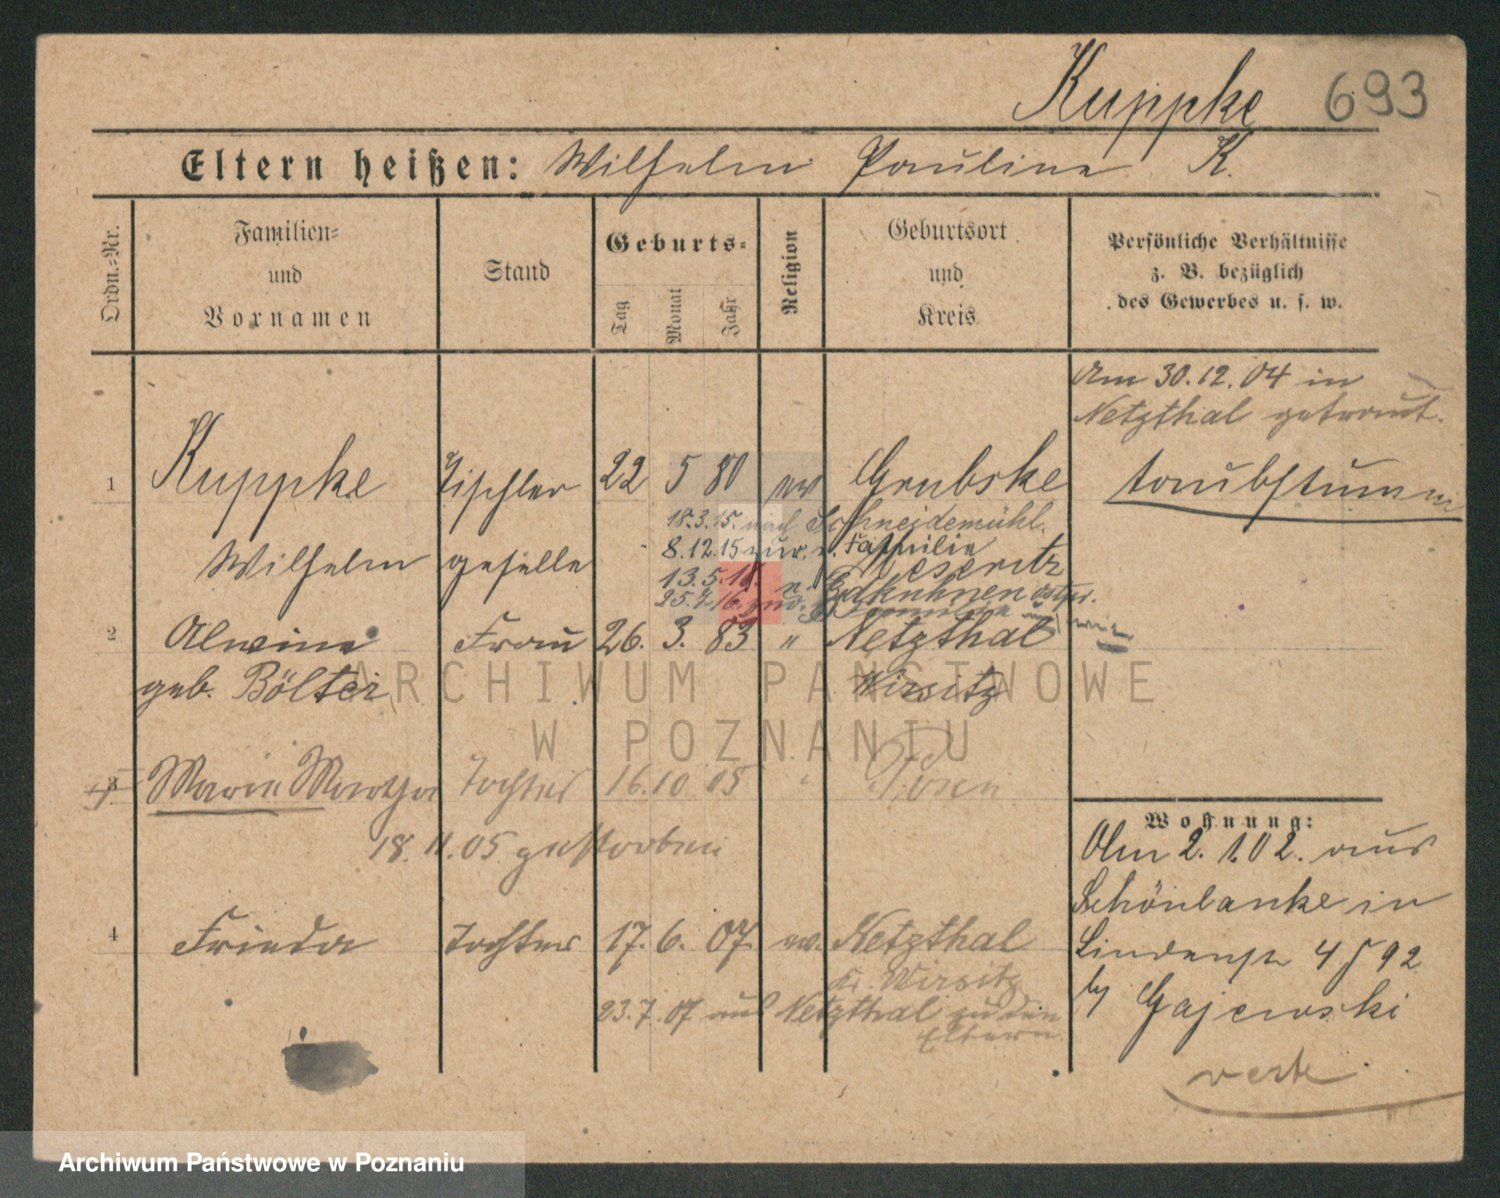 Kuppke 693
Eltern heißen: Wilhelm Pauline K.
Ordn.=Nr.
Familien=
und
Vornamen
Stand
Geburts=
Tag
Monat
Jahr
Religion
Geburtsort
und
Kreis
Persönliche Verhältnisse
z. B. bezüglich
des Gewerbes u. s. w.
Am 30.12.04 in
Netzthal getraut.
1 Kuppke Tischler 22 5 80 ev Grabske taubstumm
18.3.15. nach Schneidemühl.
8.12.15 zur. v. Familie
Wilhelm geselle
Meseritz
13.5.16. n. Eydtkuhnen ostpr.
25.7.16. zur.
2 Alwine Frau 26. 3. 83 " Netzthal
geb. Bölter Wirsitz
ARCHIWUM PAŃSTWOWE
W POZNANIU
3 Marie Martha Tochter 16. 10 05 " Posen
18. 11. 05 gestorben
Wohnung:
Am 2. 1. 02. aus
Schönlanke in
4 Frieda Tochter 17. 6. 07. ev. Netzthal
Kr. Wirsitz
Lindenstr 4 f 92
23. 7. 07 aus Netzthal zu den
Eltern
by Gajewski
verte
Archiwum Państwowe w Poznaniu